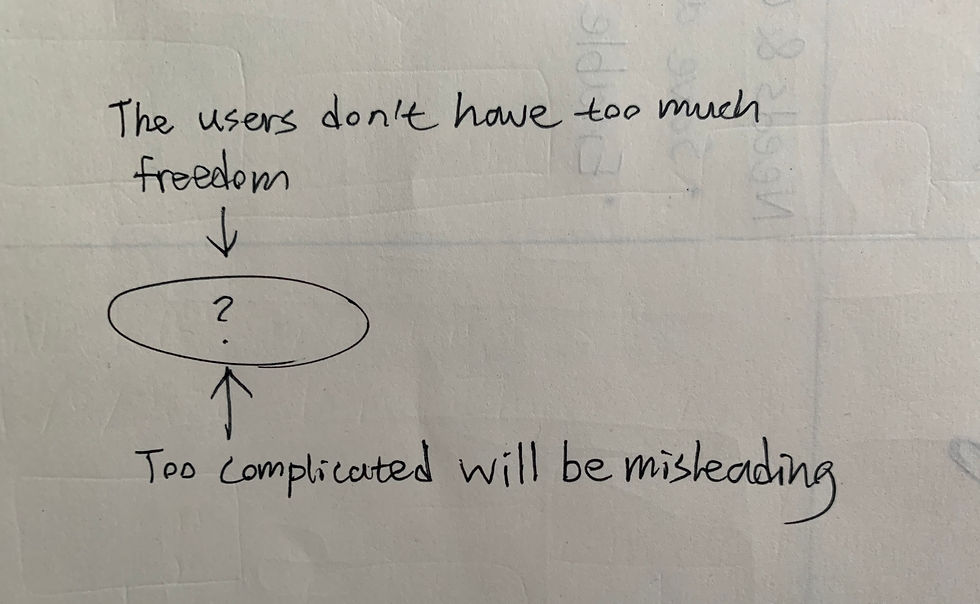 The users don't have too much
freedom
?
Too complicated will be misleading